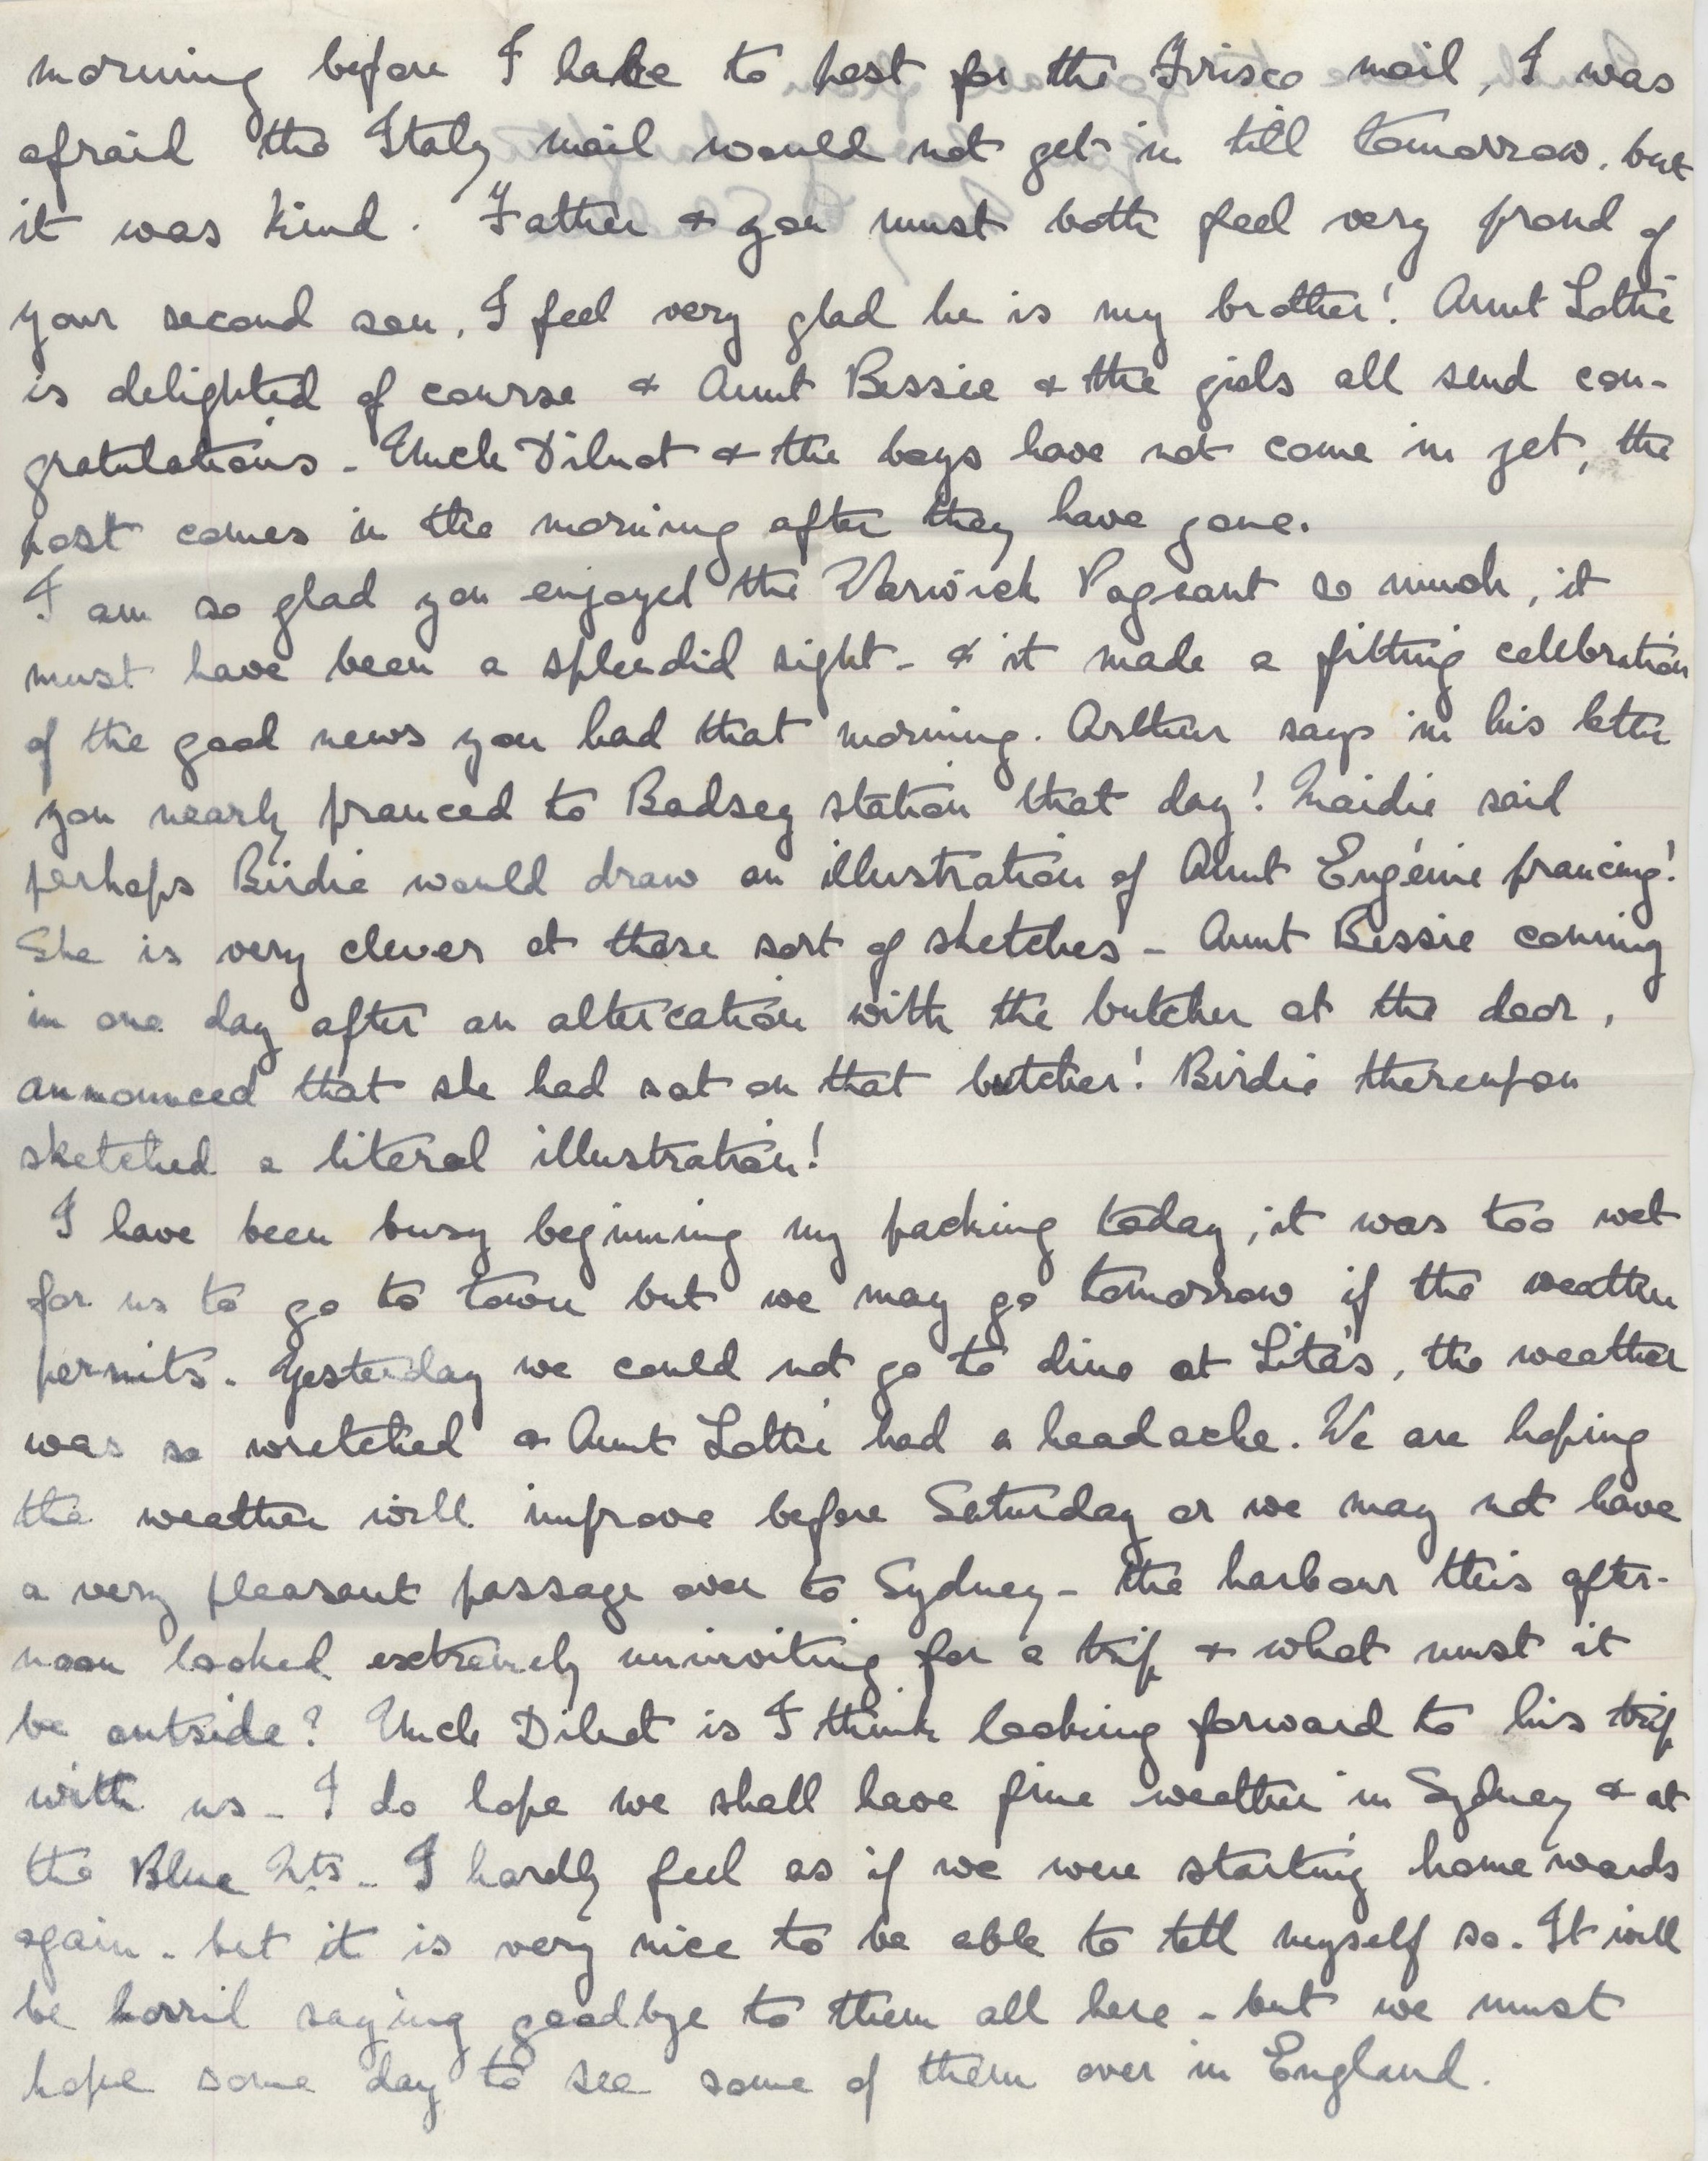 morning before I have to post for the Frisco mail, I was
afraid the Italy mail would not get in till tomorrow, but
it was kind. Father & you must both feel very proud of
your second son, I feel very glad he is my brother! Aunt Lottie
is delighted of course & Aunt Bessie & the girls all send con-
gratulations - Uncle Dilnot & the boys have not come in yet, the
post comes in the morning after they have gone.
I am so glad you enjoyed the Warwick Pageant so much, it
must have been a splendid sight - & it made a fitting celebration
of the good news you had that morning. Arthur says in his letter
you nearly pranced to Badsey station that day! Maidie said
perhaps Birdie would draw an illustration of Aunt Eugénie prancing!
She is very clever at those sort of sketches - Aunt Bessie coming
in one day after an altercation with the butcher at the door,
announced that she had sat on that butcher! Birdie thereupon
sketched a literal illustration!
I have been busy beginning my packing today; it was too wet
for us to go to town but we may go tomorrow if the weather
permits. Yesterday we could not go to dine at Lita's, the weather
was so wretched & Aunt Lottie had a headache. We are hoping
the weather will improve before Saturday or we may not have
a very pleasant passage over to Sydney - the harbour this after-
noon looked extremely uninviting for a trip & what must it
be outside? Uncle Dilnot is I think looking forward to his trip
with us - I do hope we shall have fine weather in Sydney & at
the Blue Mts - I hardly feel as if we were starting homewards
again - but it is very nice to be able to tell myself so. It will
be horrid saying goodbye to them all here - but we must
hope some day to see some of them over in England.